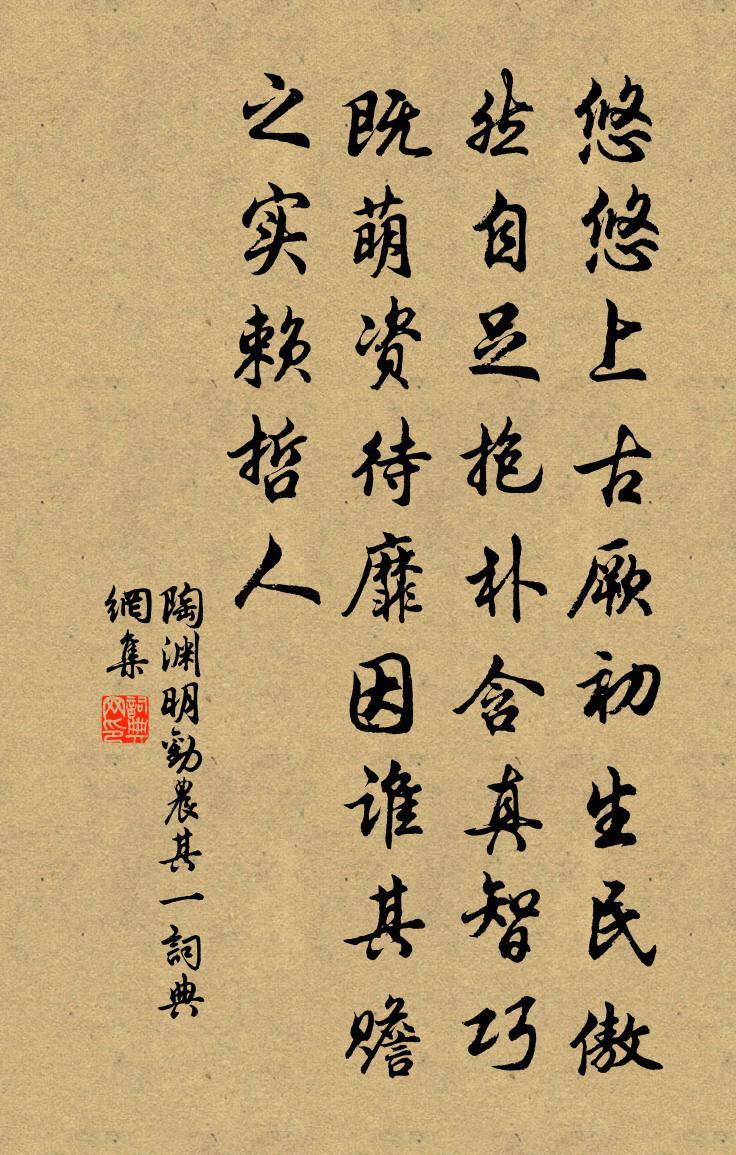 悠悠上古厥初生民傲
然自足抱朴含真智巧
既萌资待靡因谁其赡
之实赖哲人
陶渊明勸農其一詞典
網集
詞典
网印